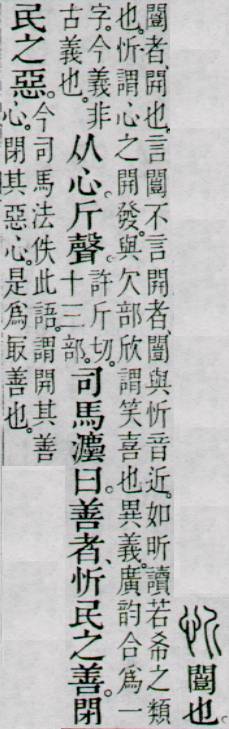 忻 闓也。
闓者、開也。言闓不言開者、闓與忻音近。如昕讀若希之類
也。忻謂心之開發。與欠部欣謂笑喜也異義。廣韵合爲一
字。今義非
古義也。
从心。斤聲。
許斤切。
十三部。
司馬灋曰。善者、忻民之善。閉
民之惡。
今司馬法佚此語。謂開其善
心。閉其惡心。是爲冣善也。